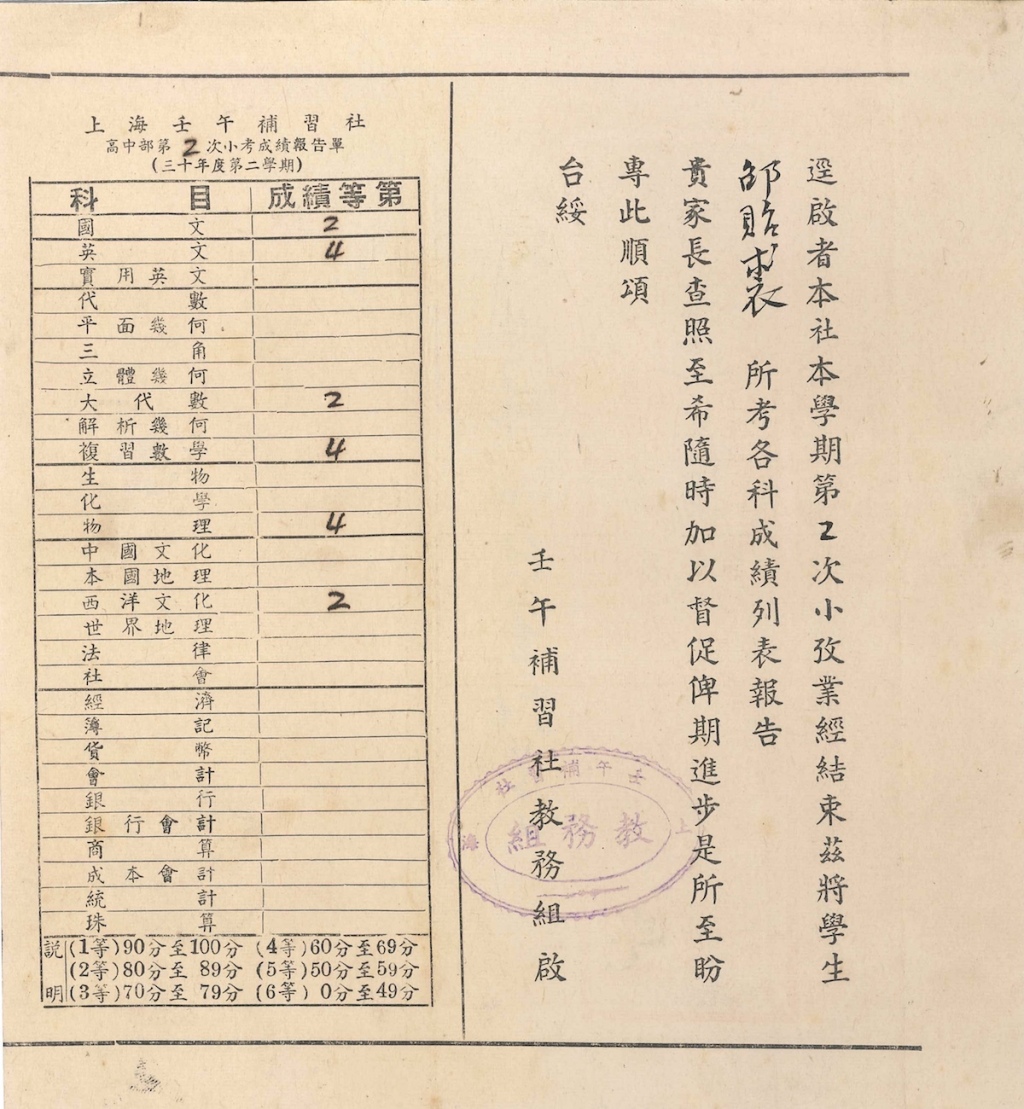 逕啟者本社本學期第2次小攷業經結束茲將學生
邵貽裘 所考各科成績列表報告
貴家長查照至希隨時加以督促俾期進步是所至盼
專此順頌
台綏
壬午補習社教務組啟
上海壬午補習社
教務組
上海壬午補習社
高中部第2次小考成績報告單
(三十年度第二學期)
科目 成績等第
國文 2
英文 4
實用英文
代數
平面幾何
三角
立體幾何
大代數 2
解析幾何
複習數學 4
生物
化學
物理 4
中國文化
本國地理
西洋文化 2
世界地理
法律
社會
經濟
簿記
貨幣
會計
銀行
銀行會計
商算
成本會計
統計
珠算
說明
(1等)90分至100分 (4等)60分至69分
(2等)80分至 89分 (5等)50分至59分
(3等)70分至 79分 (6等) 0分至49分